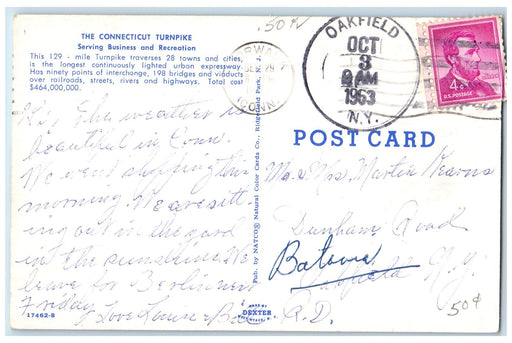 .50¢
THE CONNECTICUT TURNPIKE
Serving Business and Recreation
This 129 - mile Turnpike traverses 28 towns and cities,
is the longest continuously lighted urban expressway.
Has ninety points of interchange, 198 bridges and viaducts
over railroads, streets, rivers and highways. Total cost
$464,000,000.
CONN.
OAKFIELD
OCT
3
AM
1963
N.Y.
4¢
U.S. POSTAGE
Hi, The weather is
beautiful in Conn.
We went shopping this
morning. We are sitt-
ing out in the yard
in the sunshine. We
leave for Berlin next
Friday.
Love Louise &
17462-B
Pub. by NATCO® Natural Color Cards Co., Ridgefield Park, N. J.
MADE BY
DEXTER
POST CARD
Mr. & Mrs. Martin Kearns
Dunham Road
Batavia
Oakfield N.Y.
R.D.
50¢